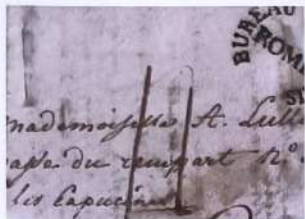 BUREAU
ROM
mademoiselle A. Lull
du rempart N°
les Capucins